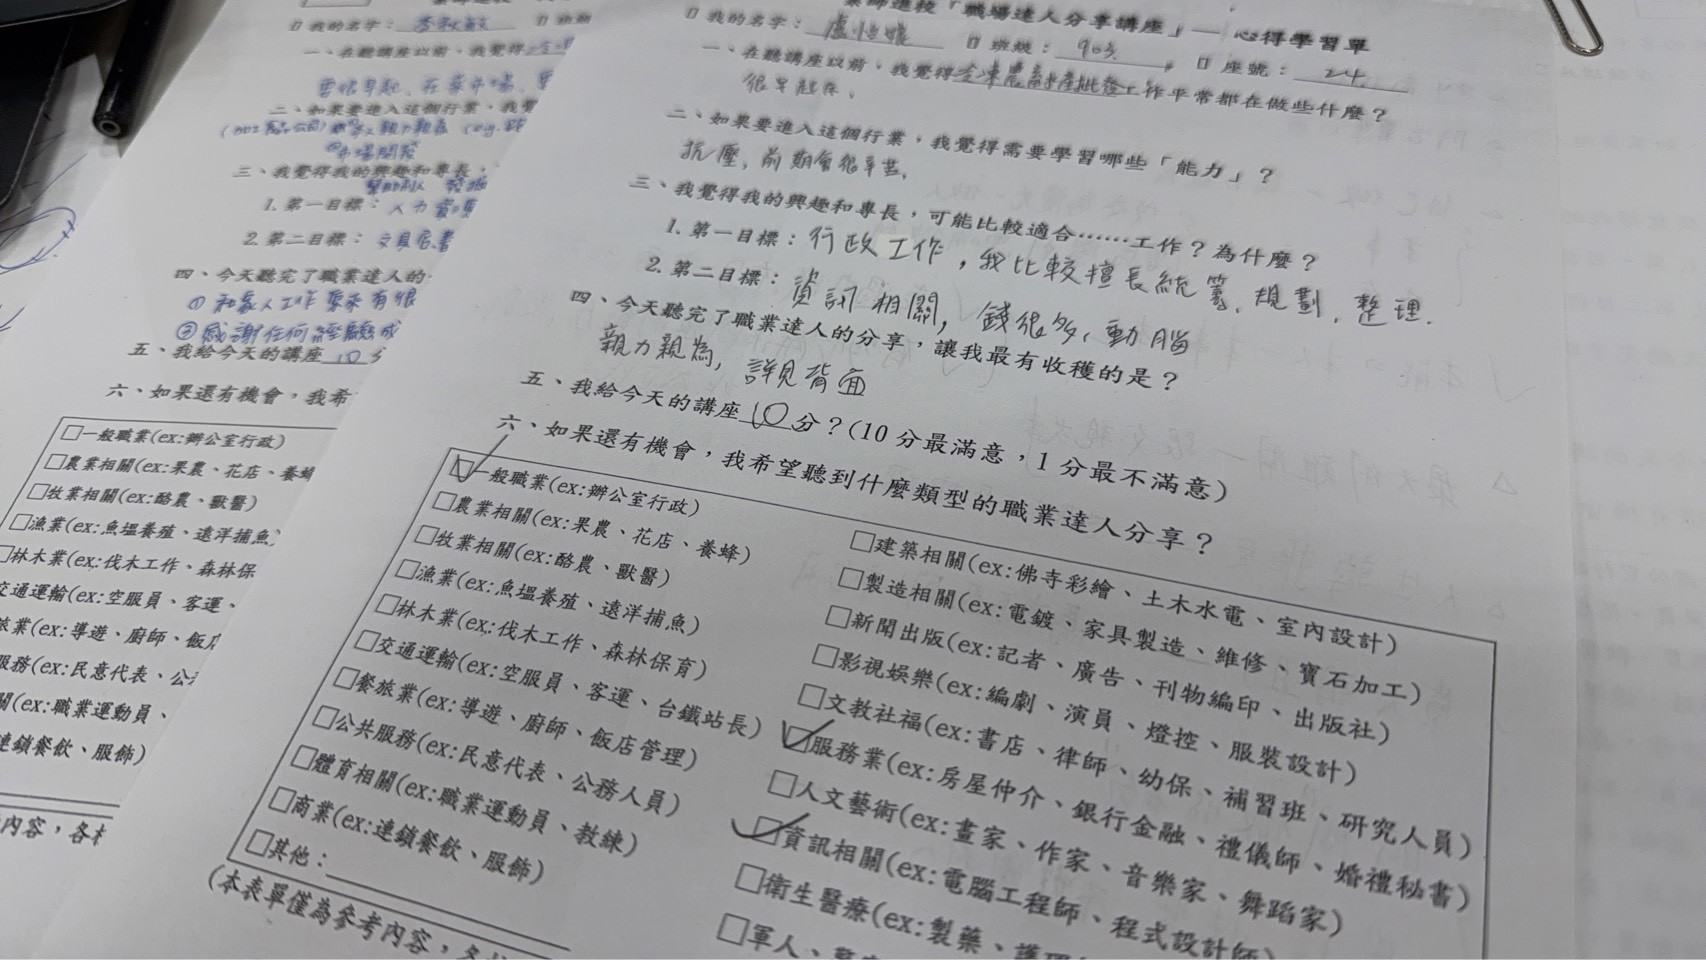 業師進校「職場達人分享講座」— 心得學習單
我的名字： 班級：903 座號：24
一、在聽講座以前，我覺得冷凍農副產批發工作平常都在做些什麼？
很早起床、
二、如果要進入這個行業，我覺得需要學習哪些「能力」？
抗壓, 前期會很辛苦,
三、我覺得我的興趣和專長，可能比較適合……工作？為什麼？
1. 第一目標：行政工作，我比較擅長統籌、規劃，整理.
2. 第二目標：資訊相關, 錢很多, 動腦
四、今天聽完了職業達人的分享，讓我最有收穫的是？
親力親為, 詳見背面
五、我給今天的講座10分？(10 分最滿意，1 分最不滿意)
六、如果還有機會，我希望聽到什麼類型的職業達人分享？
☑一般職業(ex:辦公室行政)
□農業相關(ex:果農、花店、養蜂)
□牧業相關(ex:酪農、獸醫)
□漁業(ex:魚塭養殖、遠洋捕魚)
□林木業(ex:伐木工作、森林保育)
□交通運輸(ex:空服員、客運、台鐵站長)
□餐旅業(ex:導遊、廚師、飯店管理)
□公共服務(ex:民意代表、公務人員)
□體育相關(ex:職業運動員、教練)
□商業(ex:連鎖餐飲、服飾)
□其他：
□建築相關(ex:佛寺彩繪、土木水電、室內設計)
□製造相關(ex:電鍍、家具製造、維修、寶石加工)
□新聞出版(ex:記者、廣告、刊物編印、出版社)
□影視娛樂(ex:編劇、演員、燈控、服裝設計)
□文教社福(ex:書店、律師、幼保、補習班、研究人員)
☑服務業(ex:房屋仲介、銀行金融、禮儀師、婚禮秘書)
□人文藝術(ex:畫家、作家、音樂家、舞蹈家)
☑資訊相關(ex:電腦工程師、程式設計師)
□衛生醫療(ex:製藥、護理
□軍人、警
(本表單僅為參考內容，各
我的名字：
一、在聽講座以前，我覺得
要很早起、在菜市場、
二、如果要進入這個行業，我覺
市場開發
三、我覺得我的興趣和專長，
1. 第一目標：人力資源
2. 第二目標：文具店書
四、今天聽完了職業達人的
① 和家人工作要來有很
②感謝任何經驗成
五、我給今天的講座10分
六、如果還有機會，我希
□一般職業(ex:辦公室行政)
□農業相關(ex:果農、花店、養蜂
□牧業相關(ex:酪農、獸醫)
□漁業(ex:魚塭養殖、遠洋捕魚)
□林木業(ex:伐木工作、森林保
交通運輸(ex:空服員、客運、
旅業(ex:導遊、廚師、飯店
服務(ex:民意代表、公
關(ex:職業運動員、
連鎖餐飲、服飾)
內容，各